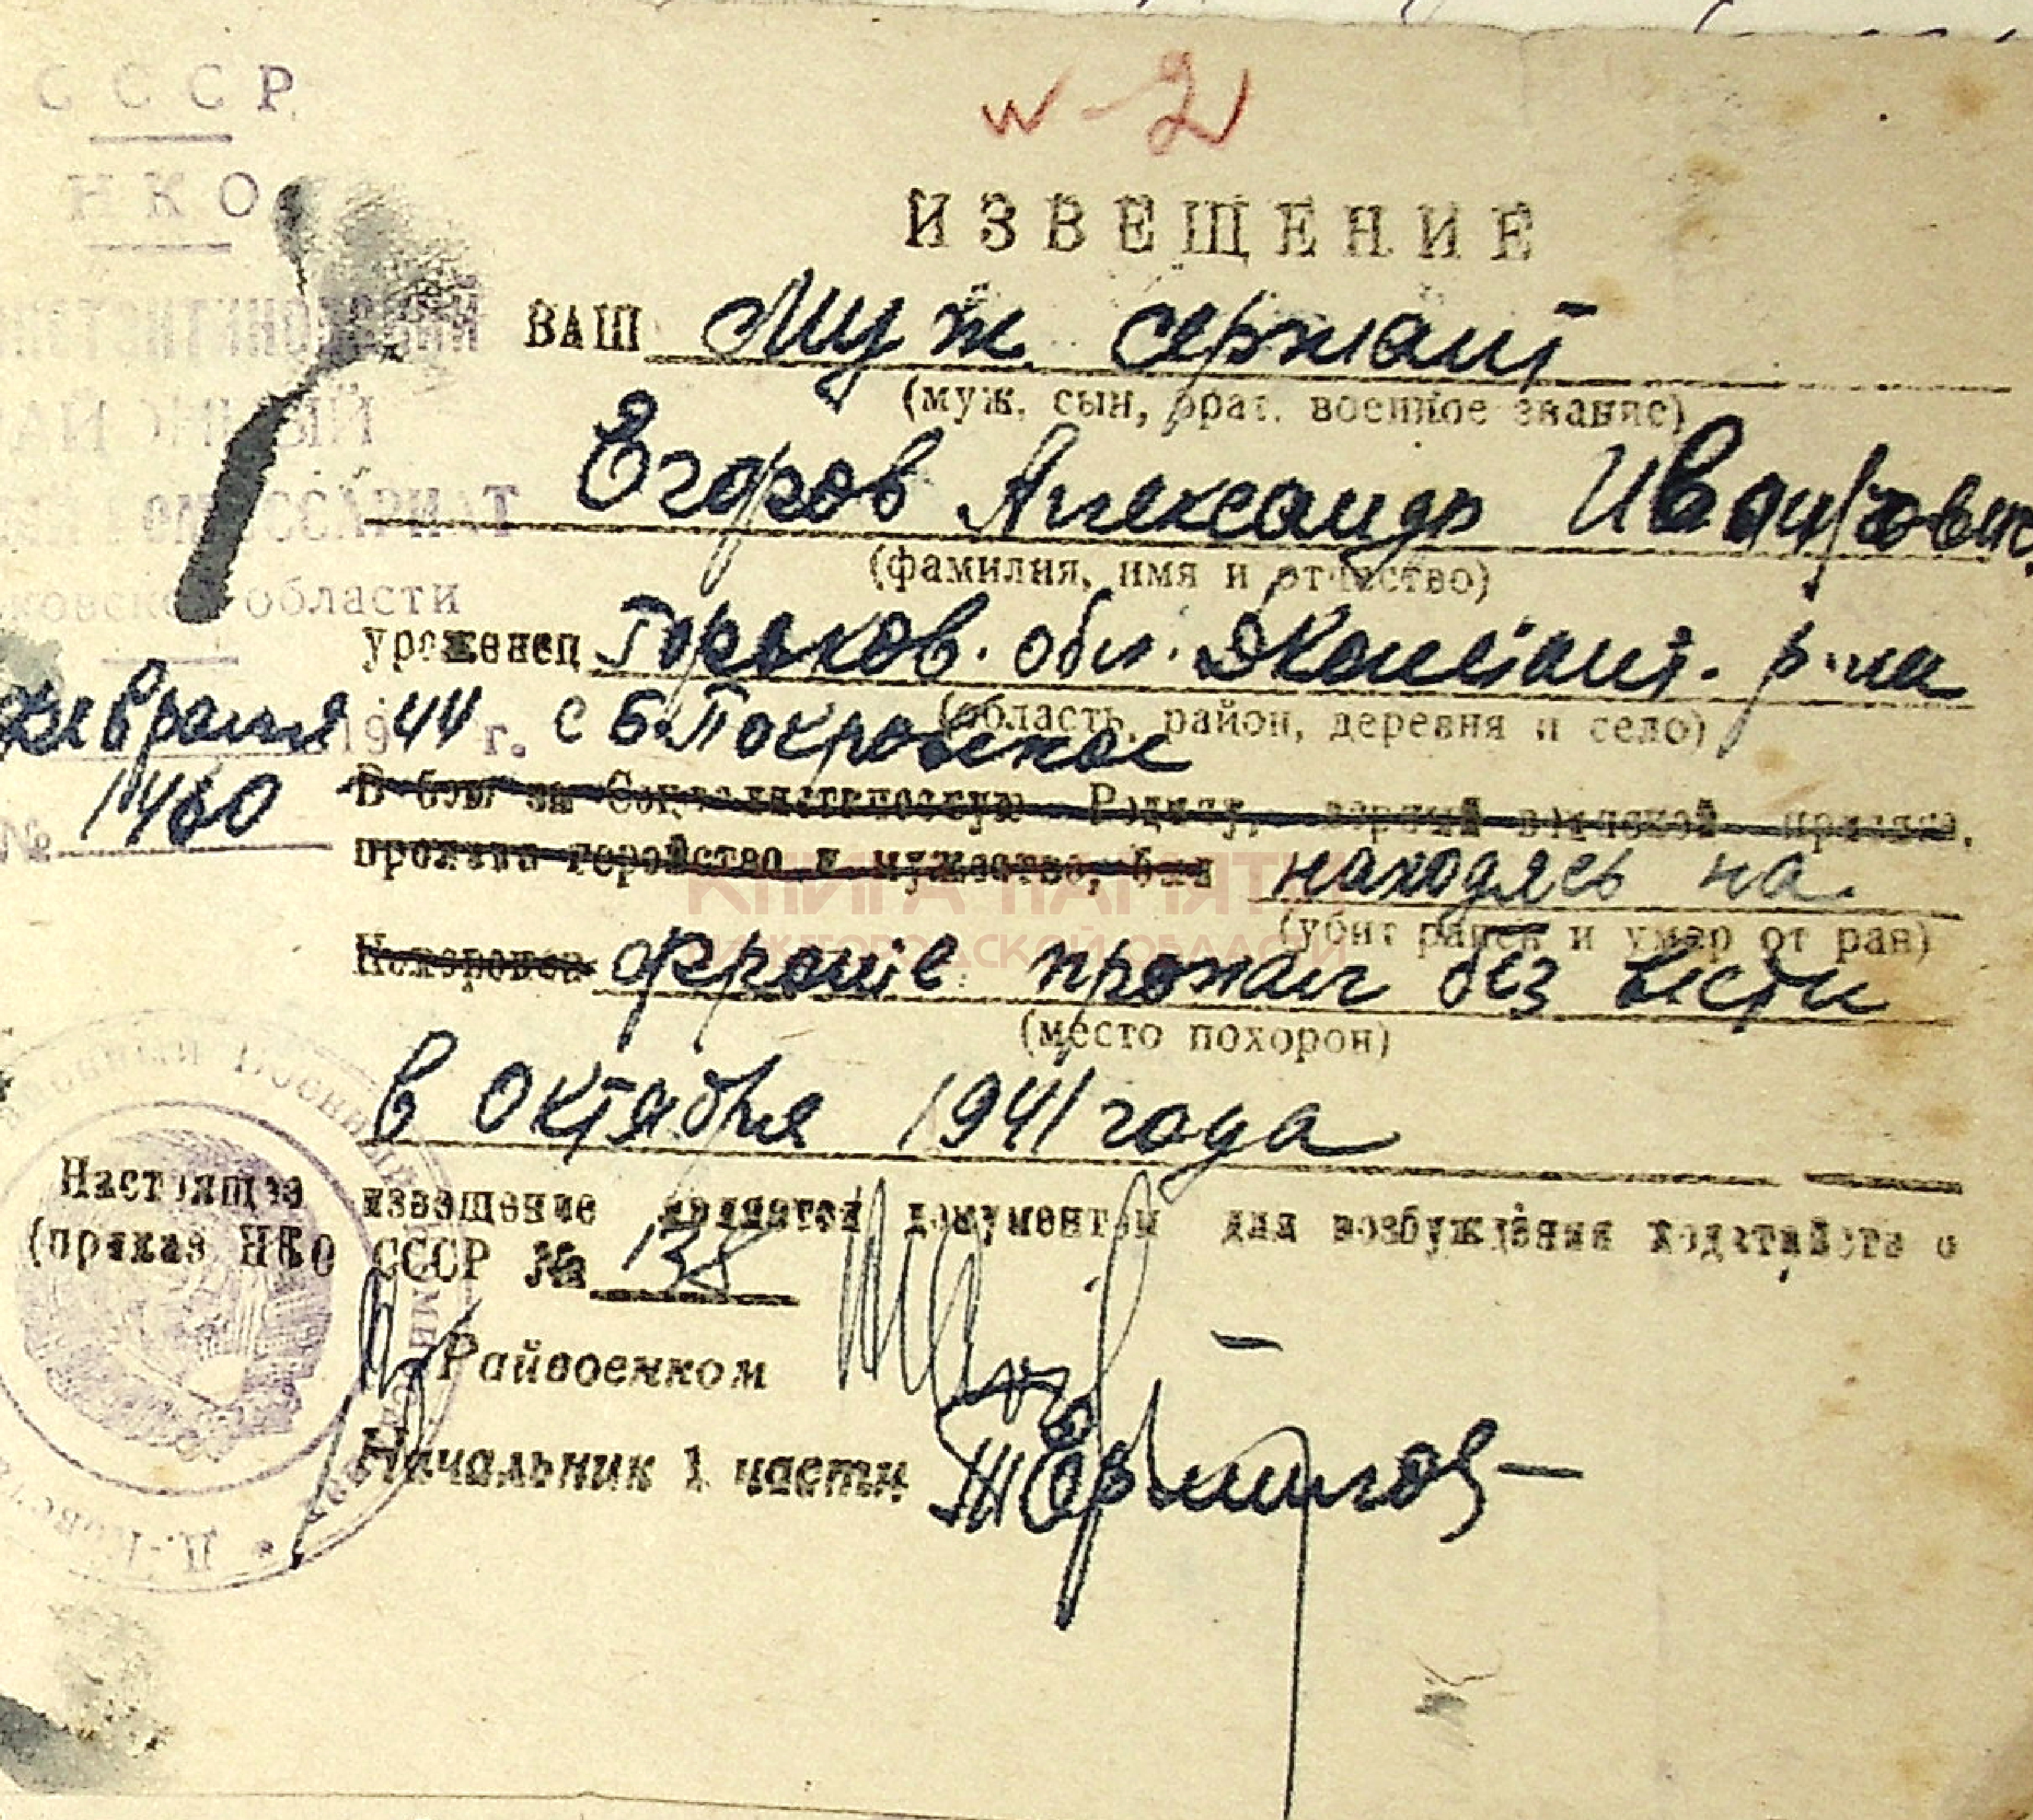 СССР
НКО
ИЗВЕЩЕНИЕ
ВАШ муж сержант
(муж, сын, брат, военное звание)
Егоров Александр Иванович
(фамилия, имя и отчество)
области
уроженец Горьков. обл. Дконстант. р-на
(область, район, деревня и село)
февраля 1944 г. с Б. Покровское
№ 1460
В бою за Социалистическую Родину, верный воинской присяге,
проявив геройство и мужество, был находясь на
(убит ранен и умер от ран)
Похоронен фронте пропал без вести
(место похорон)
в Октября 1941 года
Настоящее извещение является документом для возбуждения ходатайств о
(приказ НКО СССР № 138
Райвоенком
Начальник 1 части
КНИГА ПАМЯТИ
НИЖЕГОРОДСКОЙ ОБЛАСТИ